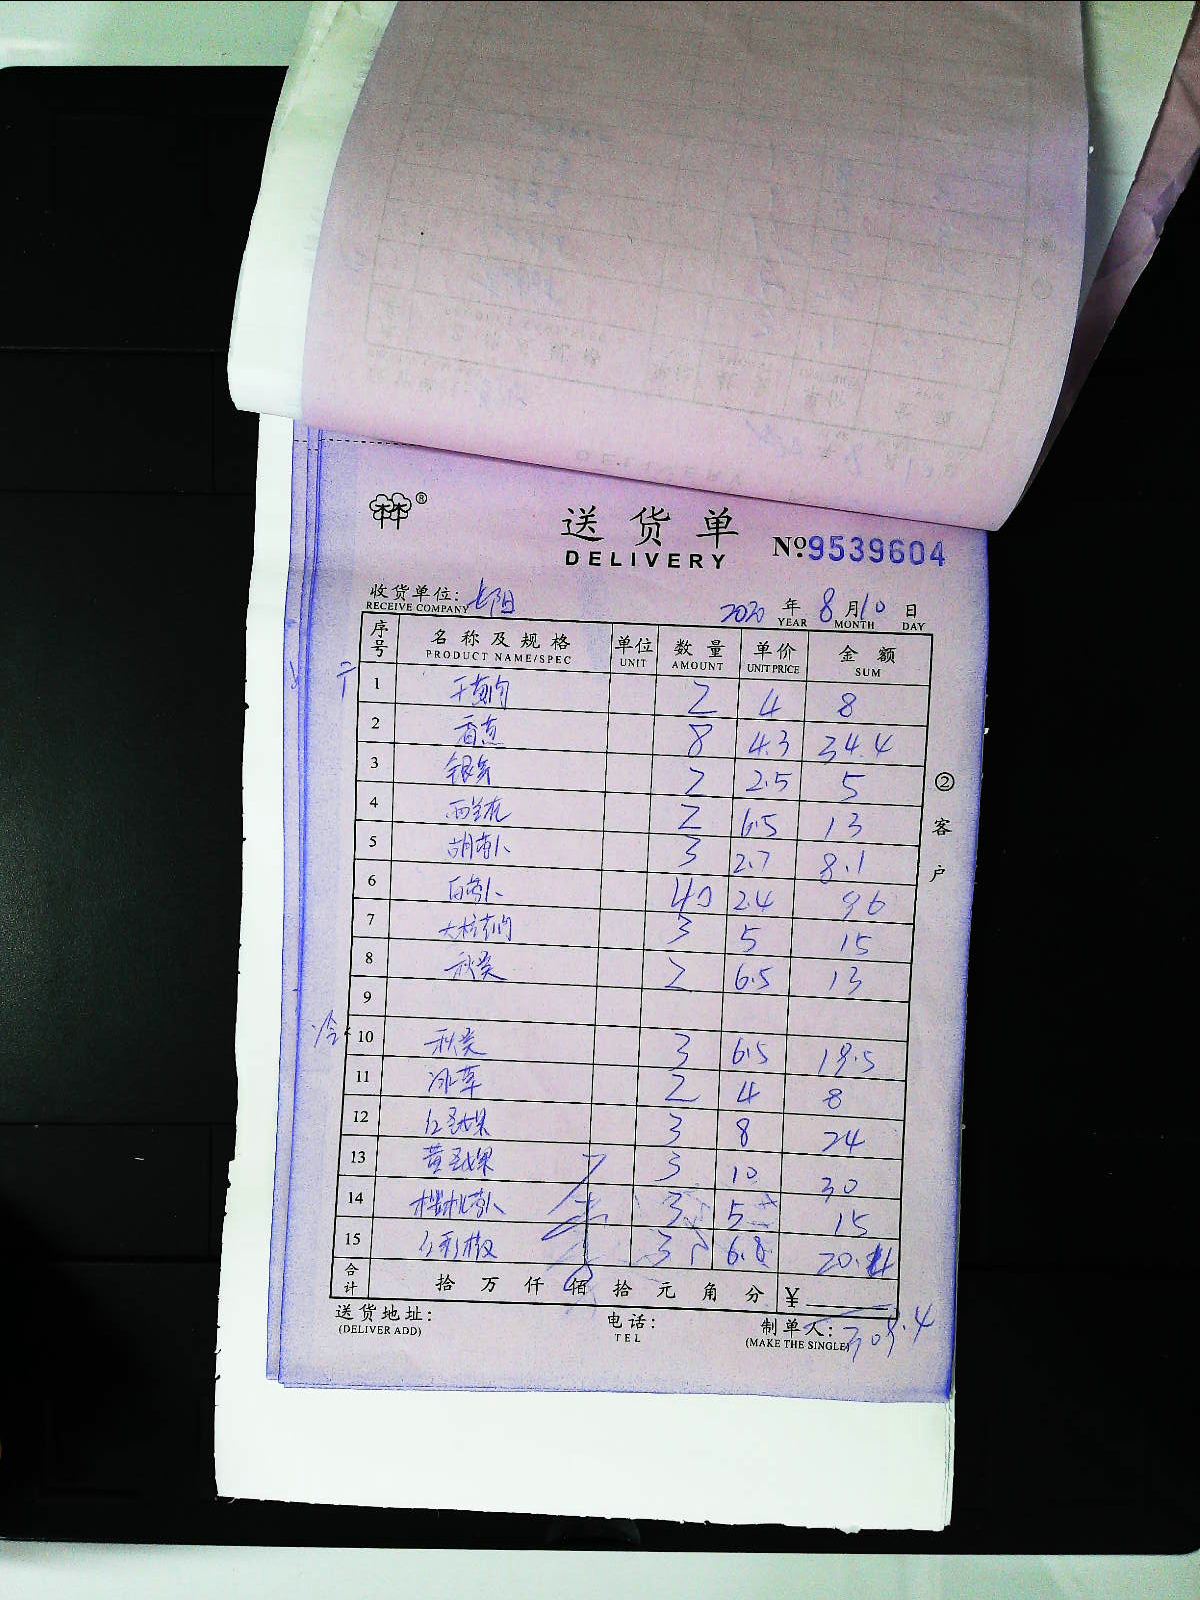 林®
送货单
DELIVERY
No.9539604
收货单位: 长阳
RECEIVE COMPANY
2020 年 8 月 10 日
YEAR MONTH DAY
序号 名称及规格 单位 数量 单价 金额
PRODUCT NAME/SPEC UNIT AMOUNT UNIT PRICE SUM
1 2 4 8
2 香蕉 8 4.3 34.4
3 银芽 2 2.5 5
4 西兰花 2 6.5 13
5 胡萝卜 3 2.7 8.1
6 白萝卜 40 2.4 96
7 3 5 15
8 秋葵 2 6.5 13
9
冷
10 秋葵 3 6.5 19.5
11 冰草 2 4 8
12 红圣女果 3 8 24
13 黄圣女果 3 10 30
14 樱桃萝卜 3 5 15
15 红彩椒 3 6.8 20.4
合计 拾 万 仟 佰 拾 元 角 分 ¥
309.4
送货地址: 电话: 制单人:
(DELIVER ADD) TEL (MAKE THE SINGLE)
②客户